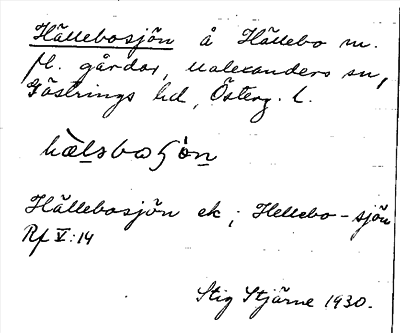 Hällebosjön å Hällebo m.
fl. gårdar, Malexanders sn,
Göstrings hd, Österg. l.
Hällebosjön ek; Hellebo-sjön
Rf V:14
Stig Stjärne 1930.